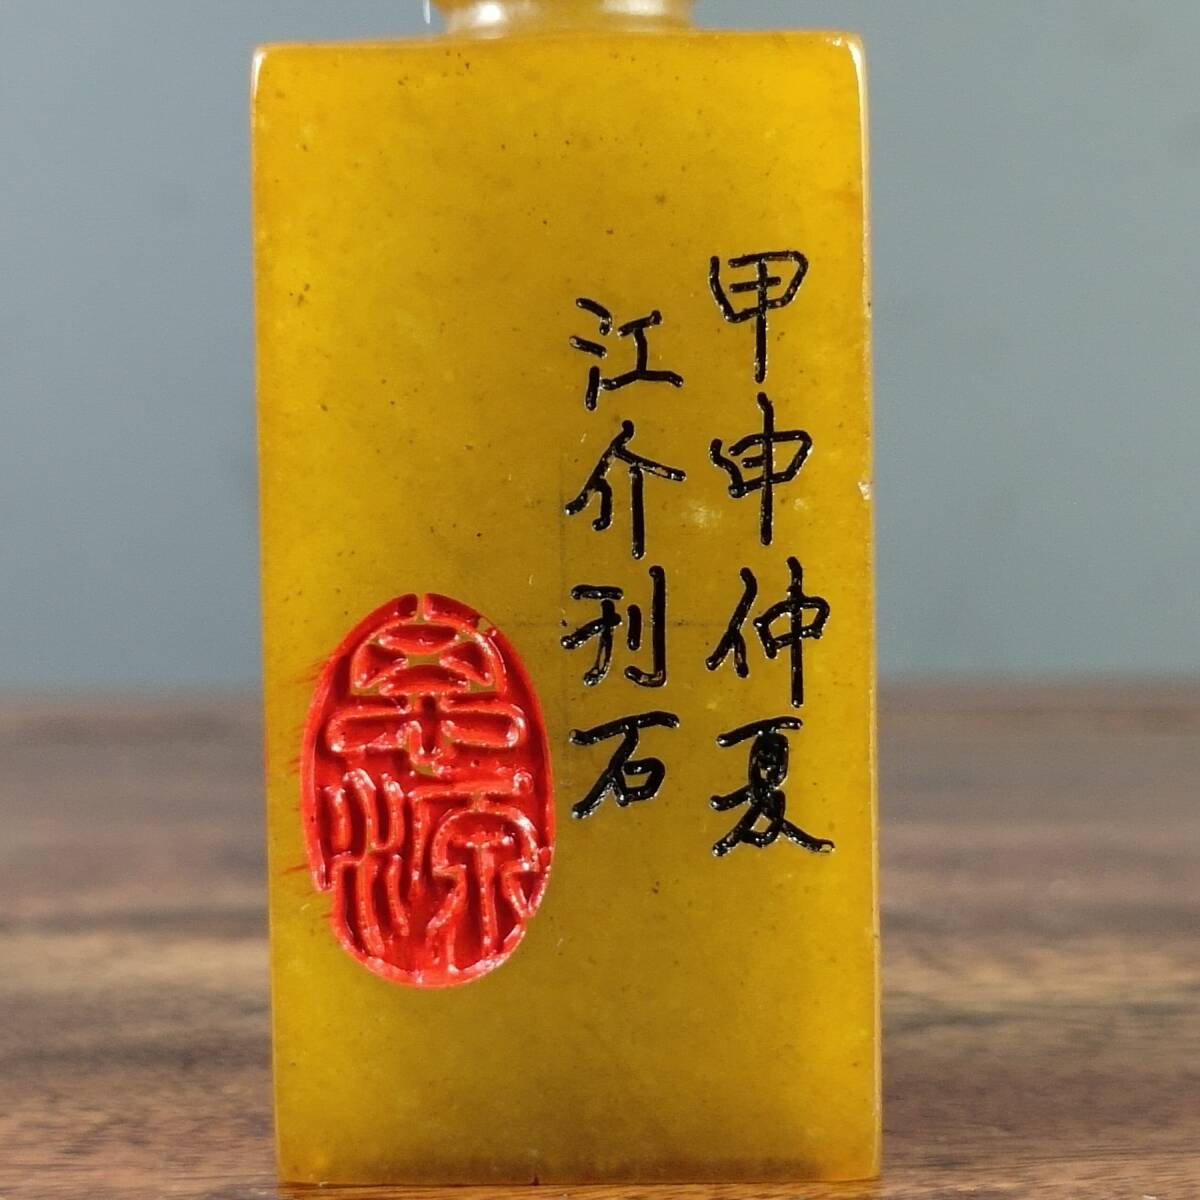 甲申仲夏
江介刊石